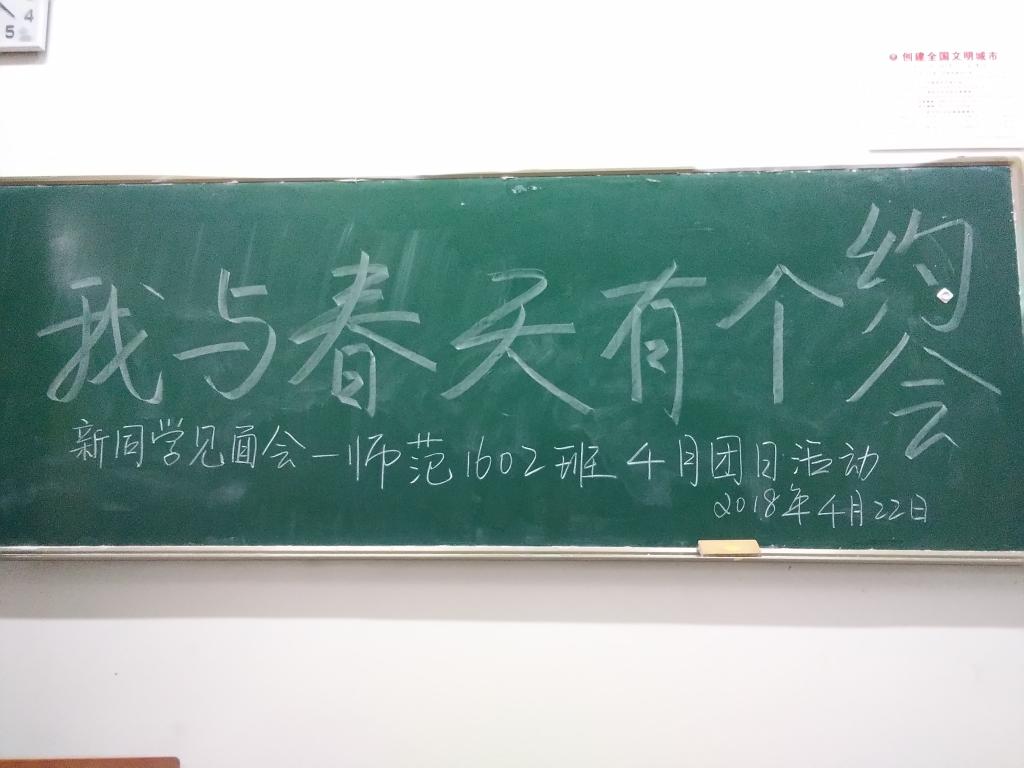 4
5
创建全国文明城市
我与春天有个约会
新同学见面会—师范1602班 4月团日活动
2018年4月22日